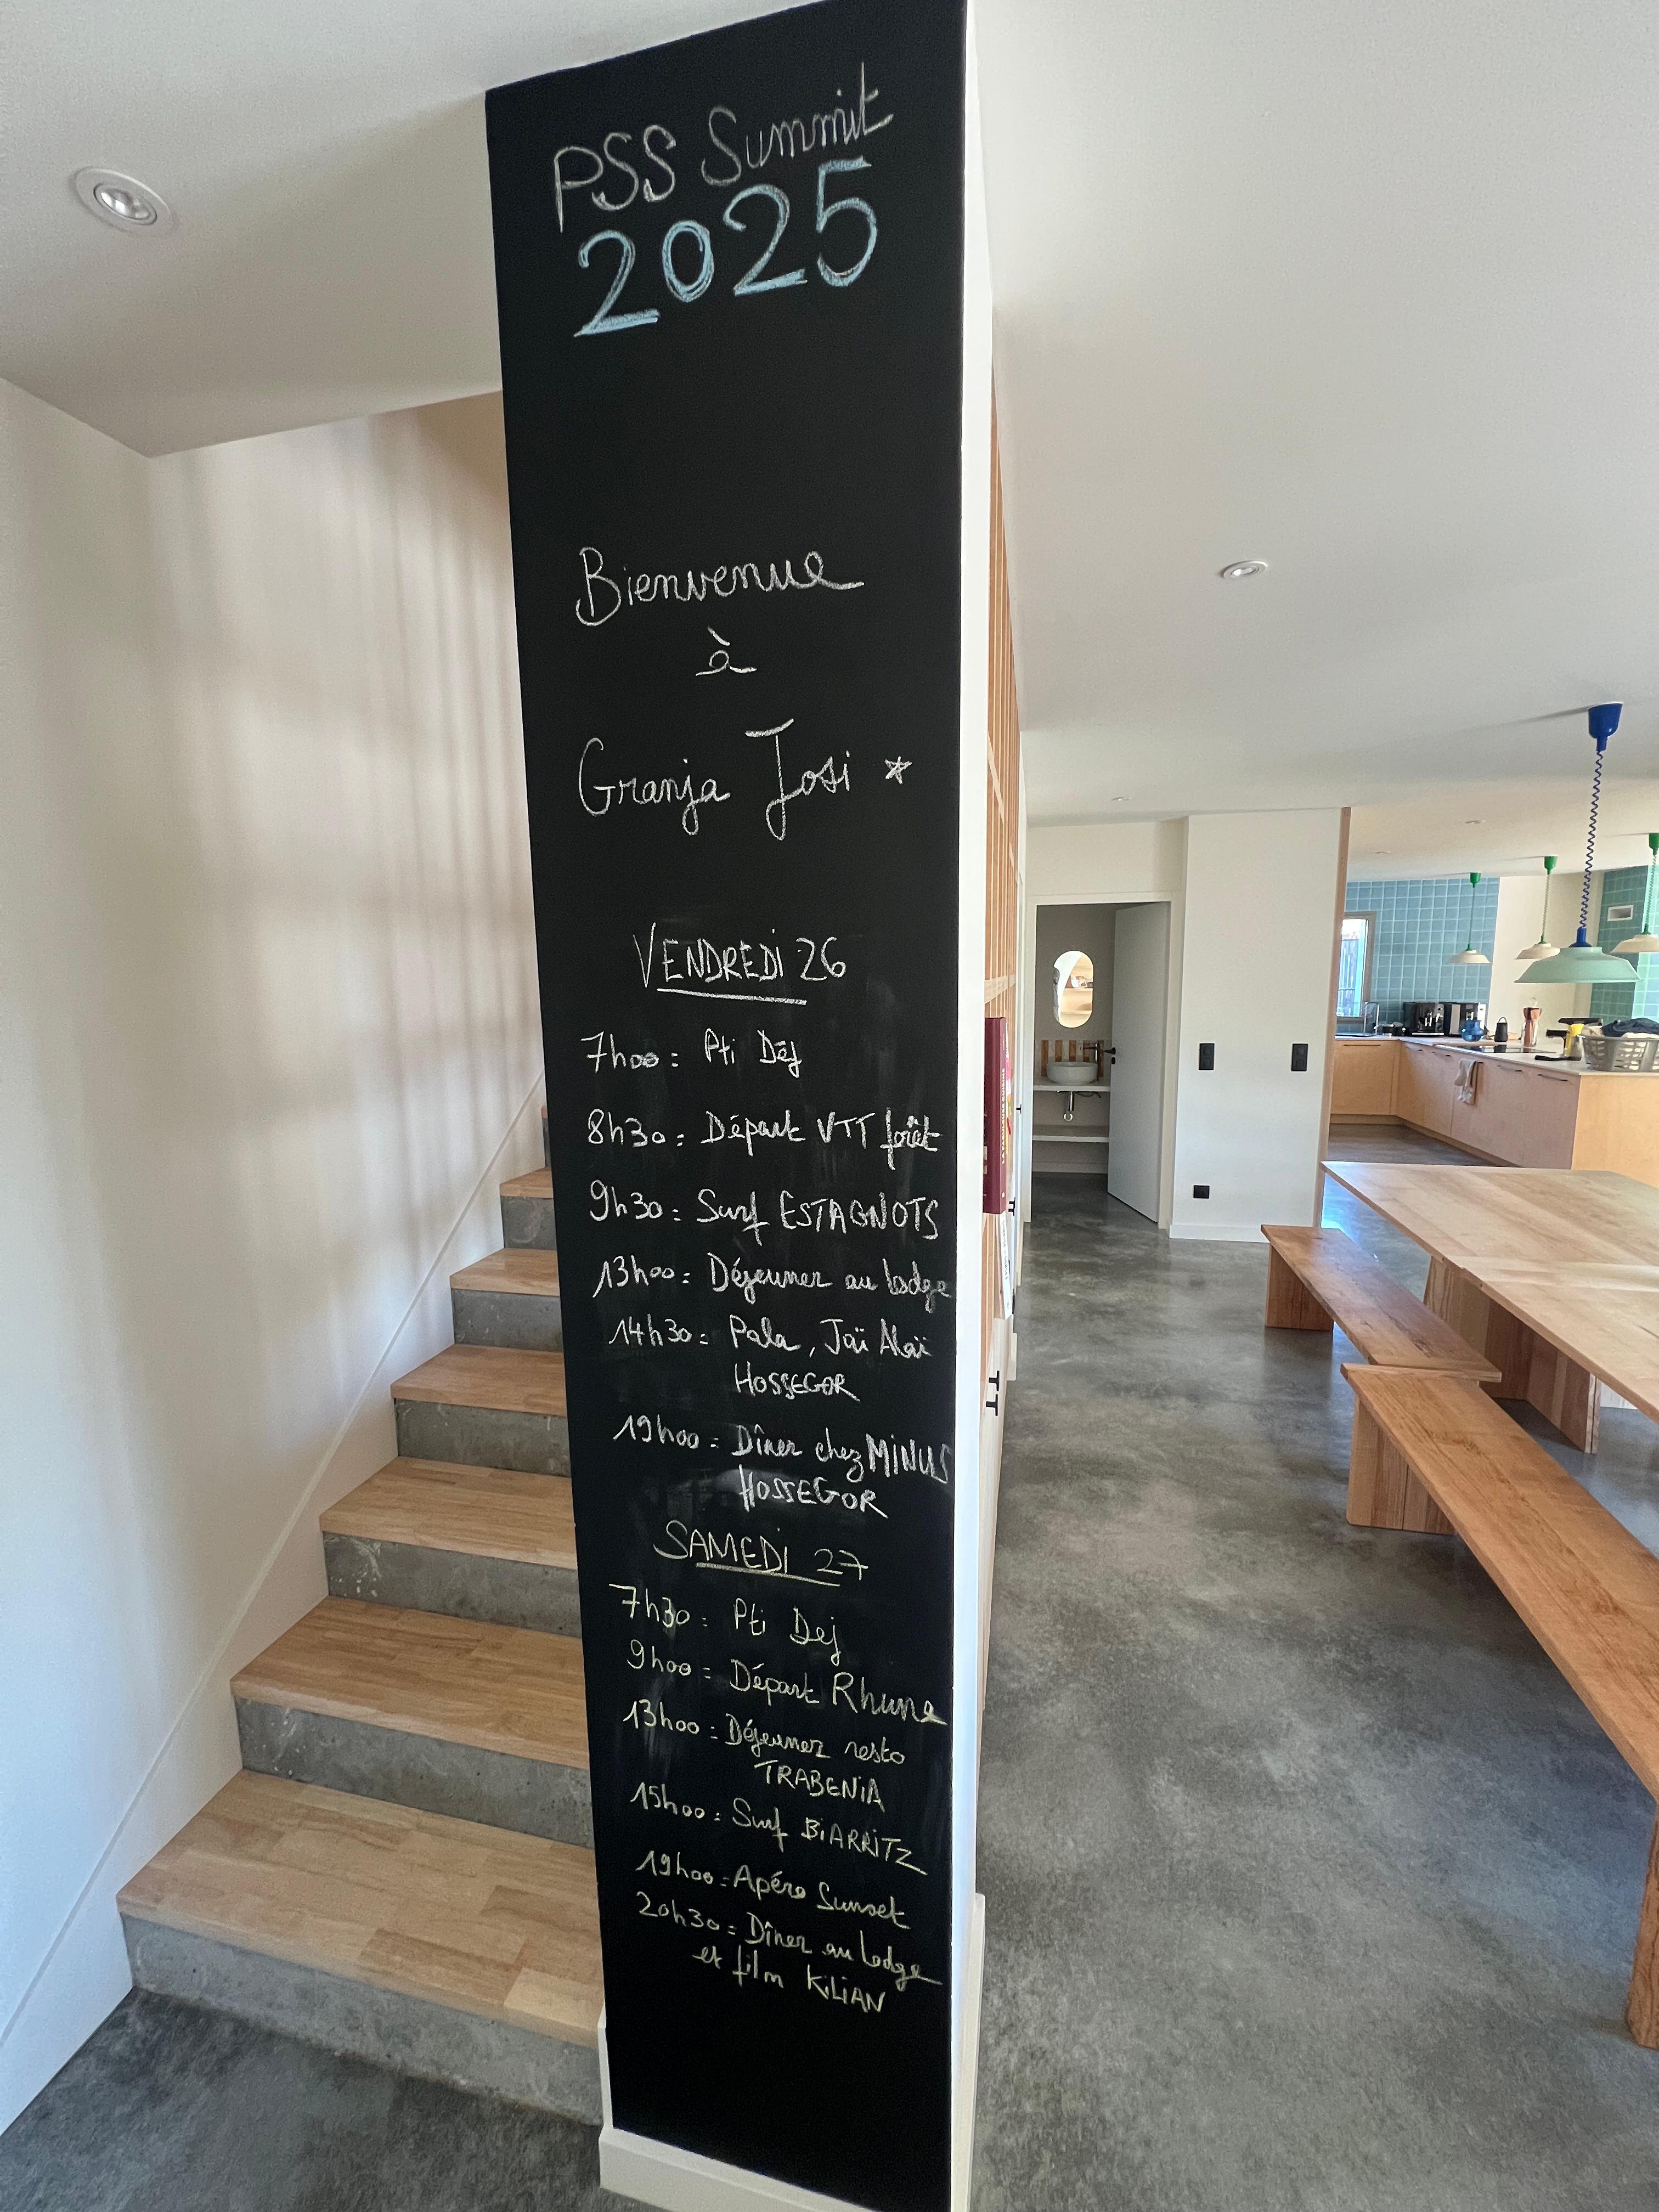 PSS Summit
2025
Bienvenue
à
Granja Josi *
VENDREDI 26
7h00 : Pti Déj
8h30 : Départ VTT forêt
9h30 : Surf ESTAGNOTS
13h00 : Déjeuner au lodge
14h30 : Pala, Jaï Alaï
HOSSEGOR
19h00 : Dîner chez MINUS
HOSSEGOR
SAMEDI 27
7h30 : Pti Dej
9h00 : Départ Rhune
13h00 : Déjeuner resto
TRABENIA
15h00 : Surf BIARRITZ
19h00 : Apéro Sunset
20h30 : Dîner au lodge
et film KILIAN